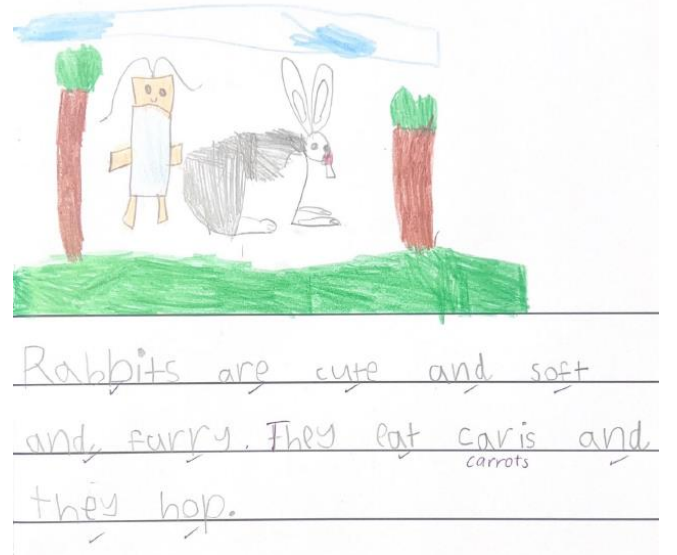 Rabbits are cute and soft
and furry. They eat caris and
carrots
they hop.